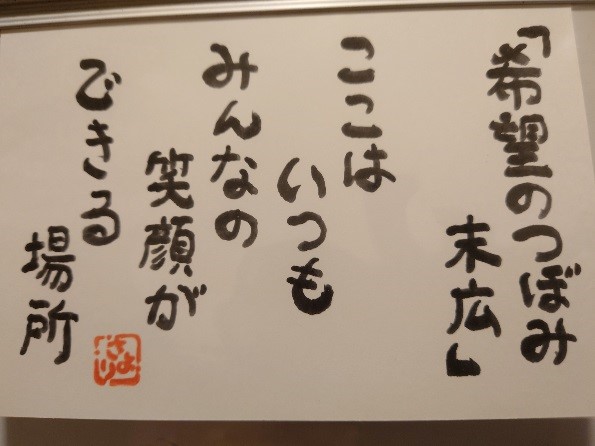 「希望のつぼみ
末広」
ここは
いつも
みんなの
笑顔が
できる
場所
きより